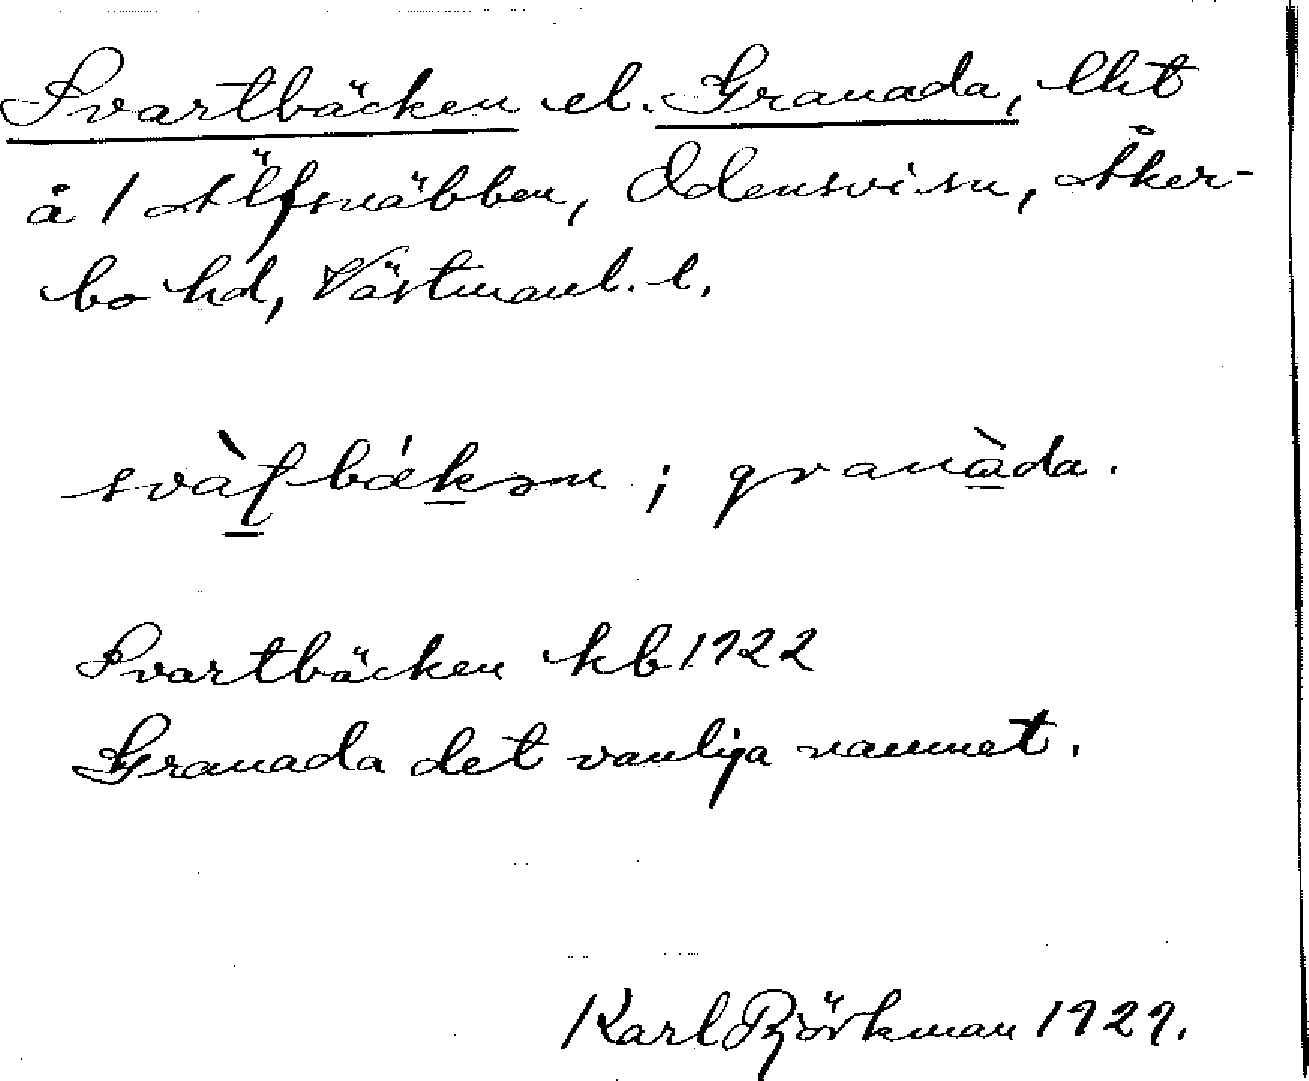 Svartbäcken el. Granada, lht
å 1 Älfsnäbben, Odensvi sn, Åker-
bo hd, Västmanl. l.
svàfbǽkən; granàda.
Svartbäcken kb 1922
Granada det vanliga namnet.
Karl Björkman 1929.